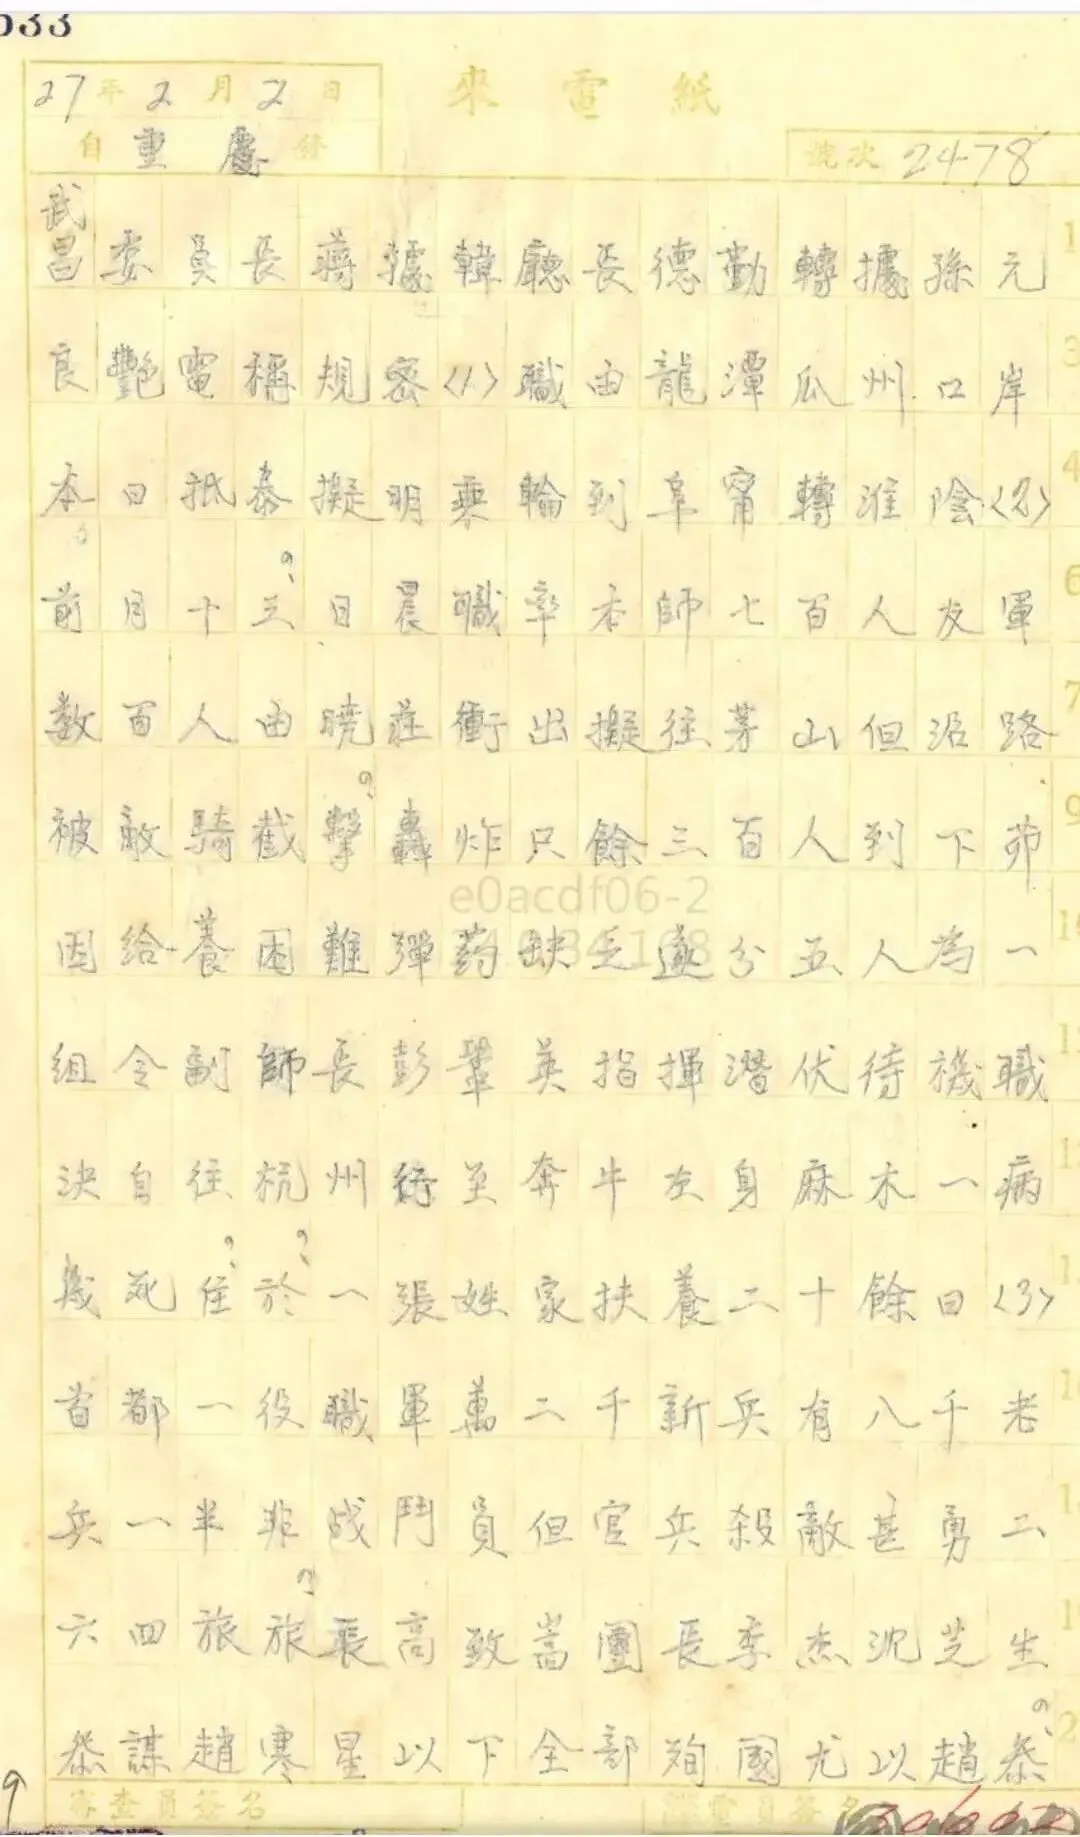 033
27年2月2日
來電紙
自重慶發
號次2478
武昌委員長蔣據韓廳長德勤轉據孫元
良艷電稱規密<1>職由龍潭瓜州口岸
本日抵泰擬明乘輪到阜甯轉淮陰<2>
前月十三日晨職率本師七百人友軍
数百人由曉莊衝出擬往茅山但沿路
被敵騎截擊轟炸只餘三百人到下茆
因给養困難彈药缺乏遂分五人為一
組令副師長彭鞏英指揮潛伏待機職
決自往杭州行至奔牛左身麻木一病
幾死住於一張姓家扶養二十餘日<3>
首都一役職軍萬二千新兵有八千老
兵一半非战鬥員但官兵殺敵甚勇二
六四旅旅長高致嵩團長李杰沈芝生
叅謀趙寒星以下全部殉國尤以趙叅
e0acdf06-2
審查員簽名
譯電員簽名